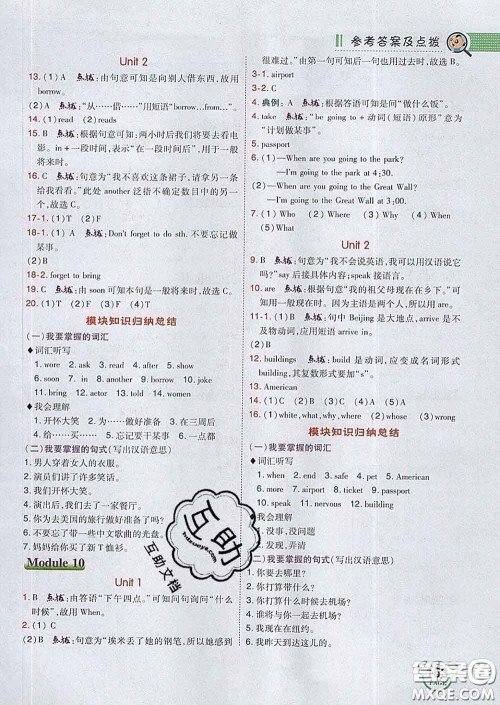 参考答案及点拨
Unit 2
13. (1) A 点拨：由句意可知是向别人借东西，故用
borrow。
(2) A 点拨：“从……借……”用短语“borrow…from…”。
14. (1) read (2) reads
15. B 点拨：根据句意可知：两小时后我们将要去看电
影。in + 一段时间，表示“在一段时间后”，故选 B。
16. C 点拨：句意为“我不喜欢这条裙子。请给我另一条
看看。”此处 another 泛指不确定数目中的另一
个，故选 C。
17-1. (1) T (2) F
17-2. (1) A 点拨：Don't forget to do sth. 不要忘记做
某事。
(2) B
18-1. (1) B (2) A
18-2. forget to bring
19. C 点拨：由 soon 可知本句是一般将来时，故选 C。
20. (1) T (2) F (3) T (4) F (5) F
模块知识归纳总结
(一)我要掌握的词汇
◆词汇听写
1. wore 2. ask 3. read 4. after 5. show
6. soon 7. if 8. wear 9. border 10. joke
11. forget 12. another 13. bring
◆我会理解
1. 开怀大笑 2. 为……做好准备 3. 在三周后
4. 给……买…… 5. 忘记要干某事 6. 一点都
(二)我要掌握的句式(写出汉语意思)
1. 男人穿着女人的衣服。
2. 演员们讲了许多笑话。
3. 我们开怀大笑。
4. 然后，我们出去了一家餐厅。
5. 你为去美国的旅行做好准备了吗？
6. 我带一些中文歌曲的光盘。
7. 妈妈给你买了新 T 恤衫。
Module 10
Unit 1
1. B 点拨：由答语“下午四点。”可知问句询问“什么
时候”，故用 When。
2. (1) C
(2) B 点拨：句意为“埃米丢了她的钢笔，所以她感到
很难过。”由第一句可知后一句也用过去时，故选 B。
3-1. airport
3-2. A
4. 典例：A 点拨：根据答语可知是问“做什么饭”。
take 点拨：“be going to + 动词（短语）原形”意为
“计划做某事”。
5. passport
6. (1) —When are you going to the park?
—I'm going to the park at 4:30.
(2) —When are you going to the Great Wall?
—I'm going to the Great Wall at 3:00.
7. (1) Who (2) When (3) What (4) Where
8. airport
Unit 2
9. B 点拨：句意为“我不会说英语，我可以用汉语说它
吗？”say 后接具体内容；speak 接语言。
10. B 点拨：句意为“我的祖父母现在在乡下。”可知应
用一般现在时。因为主语是两个人，所以 be 动
词应用 are。
11. A 点拨：句中 Beijing 是大地点，故用短语 arrive in。
12. arrive
13. buildings 点拨：build 是动词，应变成名词形式
building，其复数形式要加“s”。
13. American
14. (1) C (2) B (3) A (4) A
15. A
16. (1) what, what, why (2) where (3) whose (4) wrong
模块知识归纳总结
(一)我要掌握的词汇
◆词汇听写
1. when 2. end 3. safe 4. pet 5. American
6. airport 7. passport 8. building
9. wait 10. clothes
◆我会理解
1. 没事，没问题
2. 发现，弄清
(二)我要掌握的句式(写出汉语意思)
1. 你要带什么？
2. 你打算带什么？
3. 你打算什么时候去机场？
4. 谁将要和你一起去机场？
5. 我现在在纽约。
6. 我昨天到达这儿的。
互助
huzuwenye.com
互助文档
PAGE
答案圈
MXQE.COM